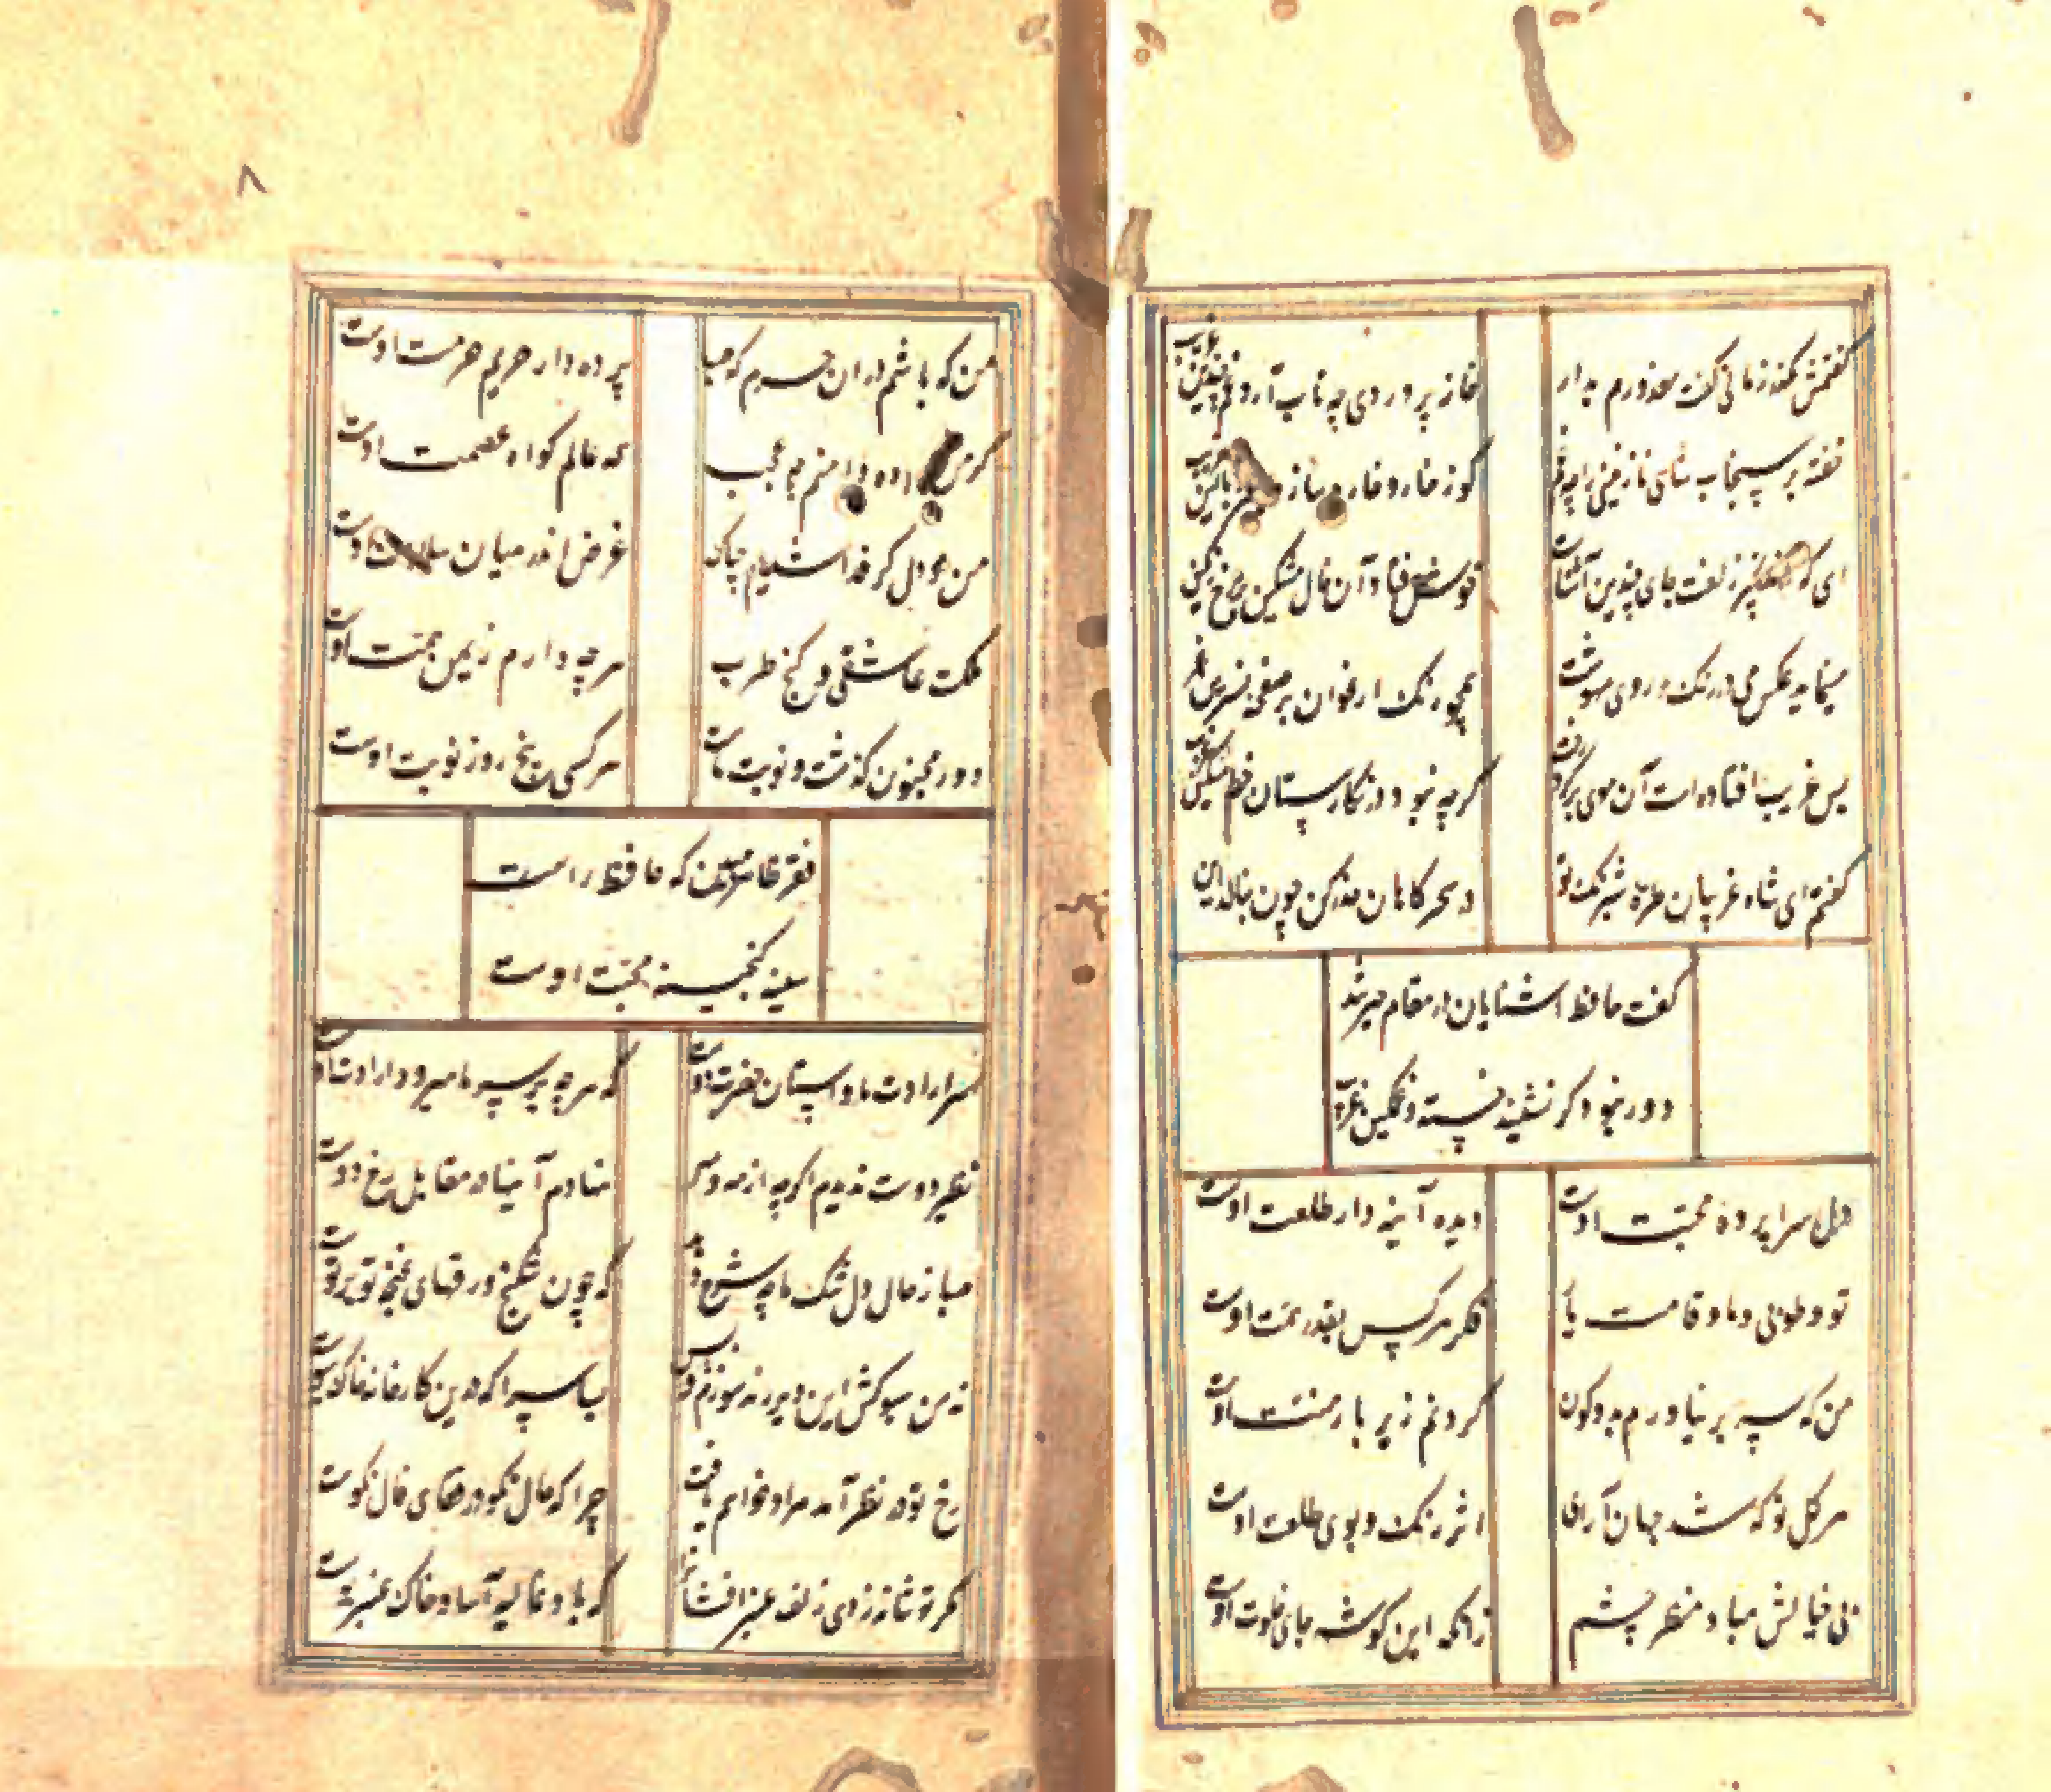 گفتمش مگذر زمانی گفت معذورم بدار
خانه پروردی چه تاب آرد غم چندین غریب
خفته بر سنجاب شاهی نازنینی را چه غم
گر ز خار و خاره سازد بستر و بالین غریب
ای که در زنجیر زلفت جای چندین آشناست
خوش فتاد آن خال مشکین بر رخ رنگین غریب
مینماید عکس می در رنگ روی مهوشت
همچو رنگ ارغوان بر صفحه نسرین غریب
بس غریب افتاده است آن موی برگرد رخت
گرچه نبود در نگارستان خط مشکین غریب
گفتم ای شاه غریبان طره شبرنگ تو
در سحرگاهان حذر کن چون بنالد این غریب
گفت حافظ آشنایان در مقام حیرتند
دور نبود گر نشیند خسته و غمگین غریب
دل سراپرده محبت اوست
دیده آینه دار طلعت اوست
تو و طوبی و ما و قامت یار
فکر هر کس بقدر همت اوست
من که سر بر نیاورم بدو کون
گردنم زیر بار منت اوست
هر گل نو که شد جهان آرا
اثر رنگ و بوی طلعت اوست
بی خیالش مباد منظر چشم
زانکه این گوشه جای خلوت اوست
من که باشم در آن حرم که صبا
پرده دار حریم حرمت اوست
گر من آلوده دامنم چه عجب
همه عالم گواه عصمت اوست
من و دل گر فدا شدیم چه باک
غرض اندر میان سلامت اوست
ملکت عاشقی و گنج طرب
هر چه دارم ز یمن همت اوست
دور مجنون گذشت و نوبت ماست
هر کسی پنج روز نوبت اوست
فقر ظاهر مبین که حافظ راست
سینه گنجینه محبت اوست
سر ارادت ما و آستان حضرت دوست
که هر چه بر سر ما میرود ارادت اوست
نظیر دوست ندیدم اگرچه از مه و مهر
نهادم آینها در مقابل رخ دوست
صبا ز حال دل تنگ ما چه شرح دهد
که چون شکنج ورقهای غنچه تو بر توست
نه من سبوکش این دیر رند سوزم و بس
بسا سرا که در این کارخانه خاک سبوست
رخ تو در نظر آمد مراد خواهم یافت
چرا که حال نکو در قفای فال نکوست
مگر تو شانه زدی زلف عنبرافشان را
که باد غالیه آسا و خاک عنبر بوست
۸